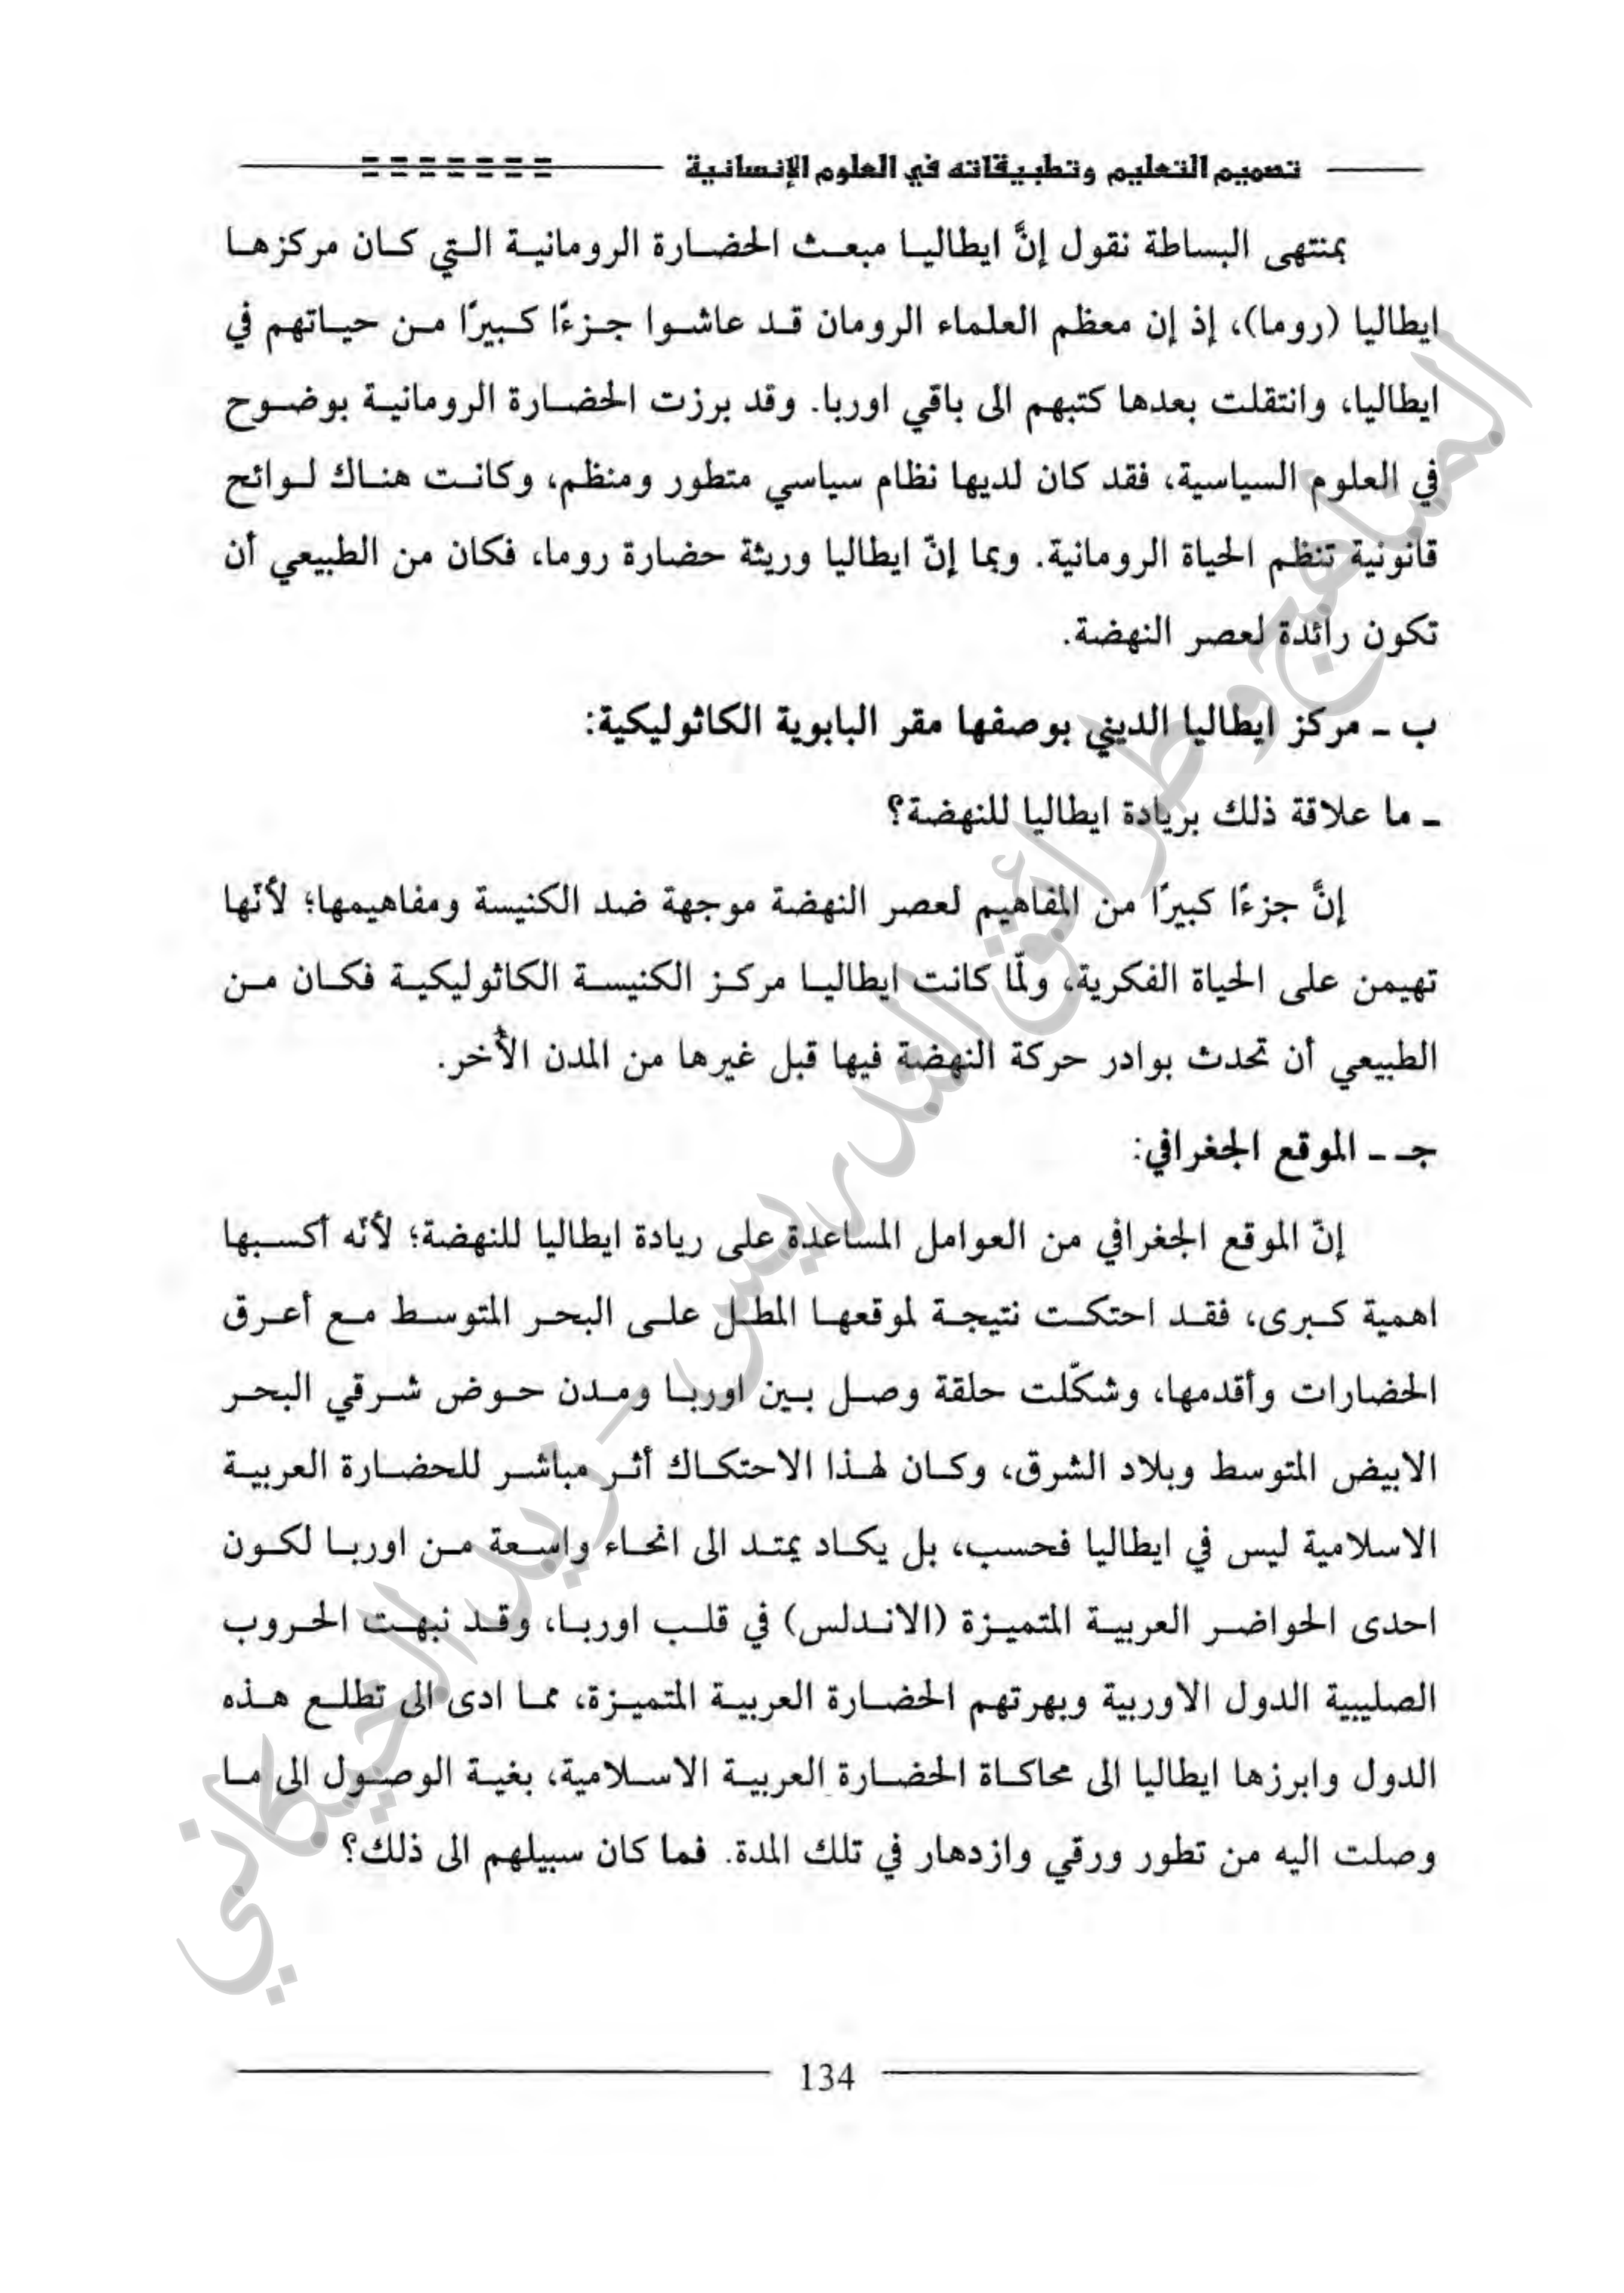 تصميم التعليم وتطبيقاته في العلوم الإنسانية
بمنتهى البساطة نقول إنَّ ايطاليا مبعث الحضارة الرومانية التي كان مركزها
ايطاليا (روما)، إذ إن معظم العلماء الرومان قد عاشوا جزءًا كبيرًا من حياتهم في
ايطاليا، وانتقلت بعدها كتبهم الى باقي اوربا. وقد برزت الحضارة الرومانية بوضوح
في العلوم السياسية، فقد كان لديها نظام سياسي متطور ومنظم، وكانت هناك لوائح
قانونية تنظم الحياة الرومانية. وبما إنّ ايطاليا وريثة حضارة روما، فكان من الطبيعي أن
تكون رائدة لعصر النهضة.
ب ـ مركز ايطاليا الديني بوصفها مقر البابوية الكاثوليكية:
ـ ما علاقة ذلك بريادة ايطاليا للنهضة؟
إنَّ جزءًا كبيرًا من المفاهيم لعصر النهضة موجهة ضد الكنيسة ومفاهيمها؛ لأنّها
تهيمن على الحياة الفكرية، ولمّا كانت ايطاليا مركز الكنيسة الكاثوليكية فكان من
الطبيعي أن تحدث بوادر حركة النهضة فيها قبل غيرها من المدن الأُخر.
جـ ـ الموقع الجغرافي:
إنّ الموقع الجغرافي من العوامل المساعدة على ريادة ايطاليا للنهضة؛ لأنّه أكسبها
اهمية كبرى، فقد احتكت نتيجة لموقعها المطل على البحر المتوسط مع أعرق
الحضارات وأقدمها، وشكّلت حلقة وصل بين اوربا ومدن حوض شرقي البحر
الابيض المتوسط وبلاد الشرق، وكان لهذا الاحتكاك أثر مباشر للحضارة العربية
الاسلامية ليس في ايطاليا فحسب، بل يكاد يمتد الى انحاء واسعة من اوربا لكون
احدى الحواضر العربية المتميزة (الاندلس) في قلب اوربا، وقد نبهت الحروب
الصليبية الدول الاوربية وبهرتهم الحضارة العربية المتميزة، مما ادى الى تطلع هذه
الدول وابرزها ايطاليا الى محاكاة الحضارة العربية الاسلامية، بغية الوصول الى ما
وصلت اليه من تطور ورقي وازدهار في تلك المدة. فما كان سبيلهم الى ذلك؟
134
المناهج وطرائق التدريس -